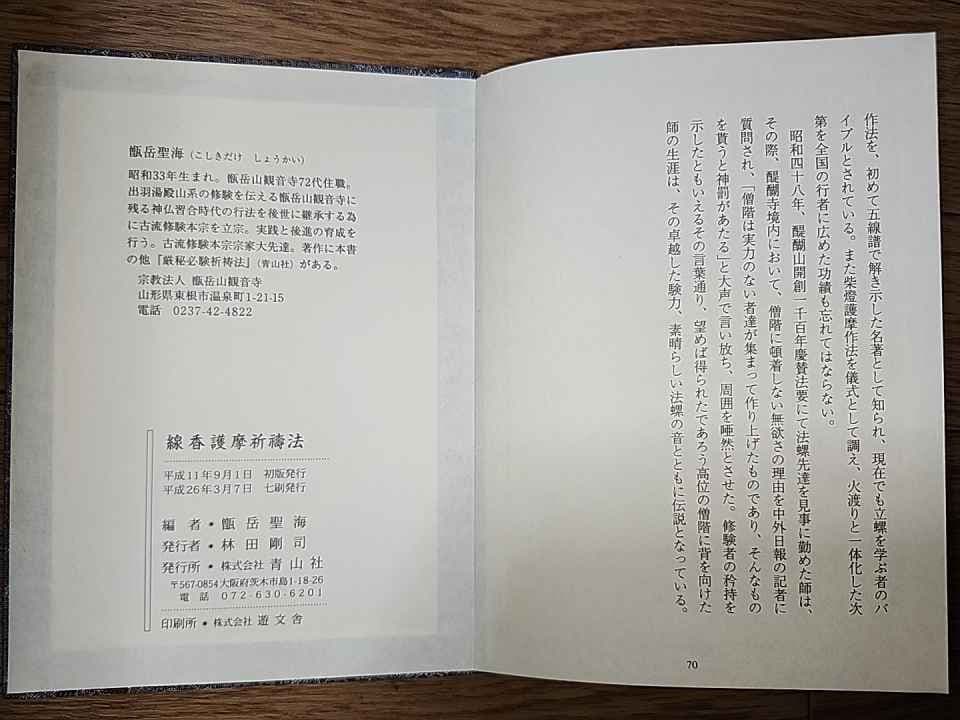 作法を、初めて五線譜で解き示した名著として知られ、現在でも立螺を学ぶ者のバ
イブルとされている。また柴燈護摩作法を儀式として調え、火渡りと一体化した次
第を全国の行者に広めた功績も忘れてはならない。
昭和四十八年、醍醐山開創一千百年慶賛法要にて法螺先達を見事に勤めた師は、
その際、醍醐寺境内において、僧階に頓着しない無欲さの理由を中外日報の記者に
質問され、「僧階は実力のない者達が集まって作り上げたものであり、そんなもの
を貰うと神罰があたる」と大声で言い放ち、周囲を唖然とさせた。修験者の矜持を
示したともいえるその言葉通り、望めば得られたであろう高位の僧階に背を向けた
師の生涯は、その卓越した験力、素晴らしい法螺の音とともに伝説となっている。
70
甑岳聖海（こしきだけ しょうかい）
昭和33年生まれ。甑岳山観音寺72代住職。
出羽湯殿山系の修験を伝える甑岳山観音寺に
残る神仏習合時代の行法を後世に継承する為
に古流修験本宗を立宗。実践と後進の育成を
行う。古流修験本宗宗家大先達。著作に本書
の他『厳秘必験祈祷法』（青山社）がある。
宗教法人 甑岳山観音寺
山形県東根市温泉町1-21-15
電話 0237-42-4822
線香護摩祈禱法
平成11年9月1日 初版発行
平成26年3月7日 七刷発行
編 者・甑岳聖海
発行者・林田剛司
発行所・株式会社青山社
〒567-0854大阪府茨木市島1-18-26
電話 072-630-6201
印刷所・株式会社 遊文舎